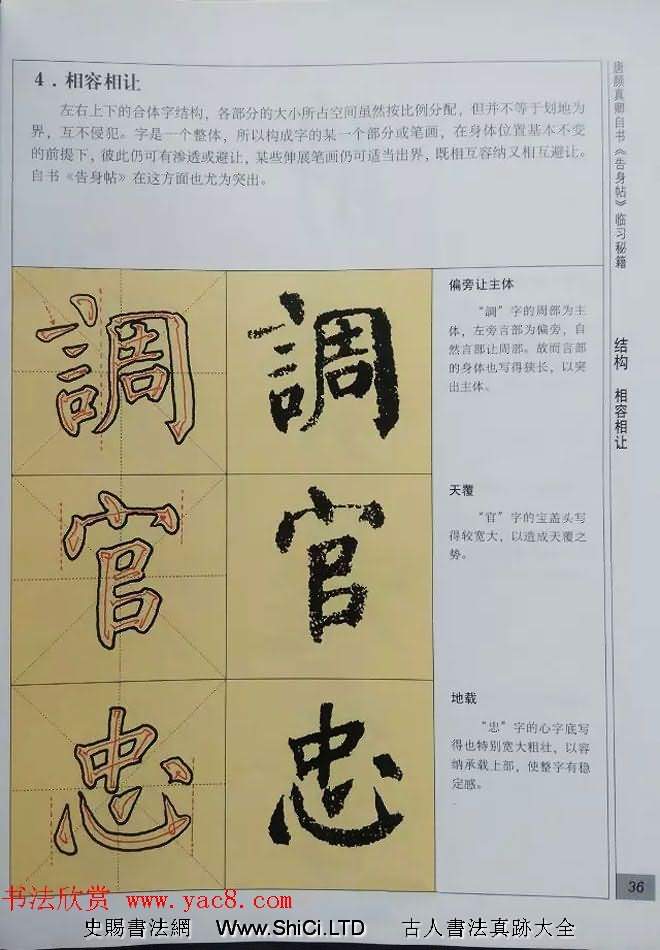 4．相容相让
左右上下的合体字结构，各部分的大小所占空间虽然按比例分配，但并不等于划地为
界，互不侵犯。字是一个整体，所以构成字的某一个部分或笔画，在身体位置基本不变
的前提下，彼此仍可有渗透或避让，某些伸展笔画仍可适当出界，既相互容纳又相互避让。
自书《告身帖》在这方面也尤为突出。
唐颜真卿自书《告身帖》临习秘籍
结构 相容相让
調 調
偏旁让主体
“調”字的周部为主
体，左旁言部为偏旁，自
然言部让周部。故而言部
的身体也写得狭长，以突
出主体。
官 官
天覆
“官”字的宝盖头写
得较宽大，以造成天覆之
势。
忠 忠
地载
“忠”字的心字底写
得也特别宽大粗壮，以容
纳承载上部，使整字有稳
定感。
36
书法欣赏 www.yac8.com
史賜書法網 Www.ShiCi.LTD 古人書法真跡大全